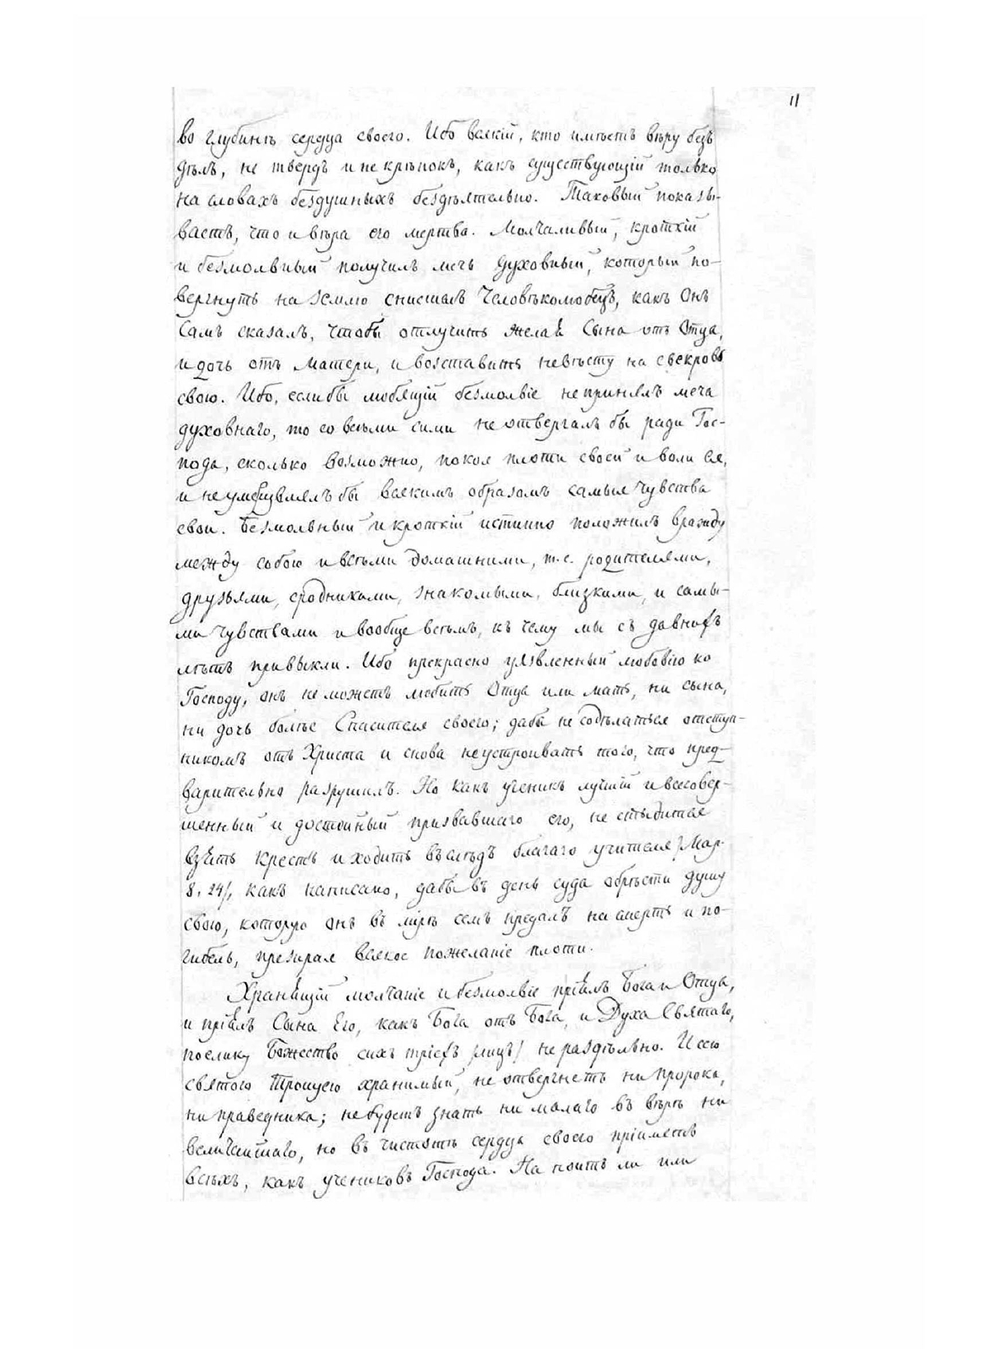 11
во глубинѣ сердца своего. Ибо всякій, кто имѣетъ вѣру безъ
дѣлъ, не твердъ и не крѣпокъ, какъ существующій только
на словахъ бездушныхъ бездѣятельно. Таковый показы-
ваетъ, что и вѣра его мертва. Молчаливый, кроткій
и безмолвный получилъ мечь духовный, который по-
вергнуть на землю снисшелъ Человѣколюбецъ, какъ Онъ
Самъ сказалъ, чтобы отлучить желая Сына отъ Отца,
и дочь отъ матери, и возставить невѣсту на свекровь
свою. Ибо, если бы любящій безмолвіе не принялъ меча
духовнаго, то со всѣми сими не отвергалъ бы ради Гос-
пода, сколько возможно, покоя плоти своей и воли ея,
и не умерщвлялъ бы всякимъ образомъ самыя чувства
свои. Безмолвный и кроткій истинно положилъ вражду
между собою и всѣми домашними, т.е. родителями,
друзьями, сродниками, знакомыми, близкими, и самы-
ми чувствами и вообще всѣмъ, къ чему мы съ давнихъ
лѣтъ привыкли. Ибо прекрасно уязвленный любовію ко
Господу, онъ не можетъ любить Отца или мать, ни сына,
ни дочь болѣе Спасителя своего; дабы не содѣлаться отступ-
никомъ отъ Христа и снова не устроивать того, что пред-
варительно разрушилъ. Но какъ ученикъ лучшій и всесовер-
шенный и достойный призвавшаго его, не стыдится
взять крестъ и ходить въ слѣдъ благаго учителя /Мар.
8, 24/, какъ написано, дабы въ день суда обрѣсти душу
свою, которую онъ въ мірѣ семъ предалъ на смерть и по-
гибель, презирая всякое пожеланіе плоти.
Хранящій молчаніе и безмолвіе пріялъ Бога и Отца,
и пріялъ Сына Его, какъ Бога отъ Бога, и Духа Святаго,
поелику Божество сихъ тріехъ /лицъ/ нераздѣльно. И сею
святою Троицею хранимый, не отвергнетъ ни пророка,
ни праведника; не будетъ знать ни малаго въ вѣрѣ ни
величайшаго, но въ чистотѣ сердца своего пріиметъ
всѣхъ, какъ учениковъ Господа. На поитъ ли или